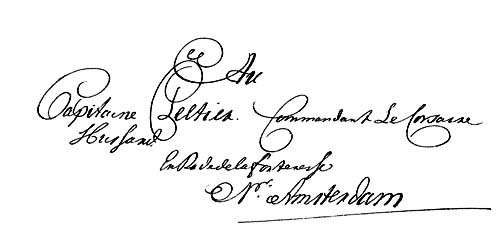 Au
Capitaine Peltier. Commandant Le Corsaire
En Rade de la forteresse
Amsterdam